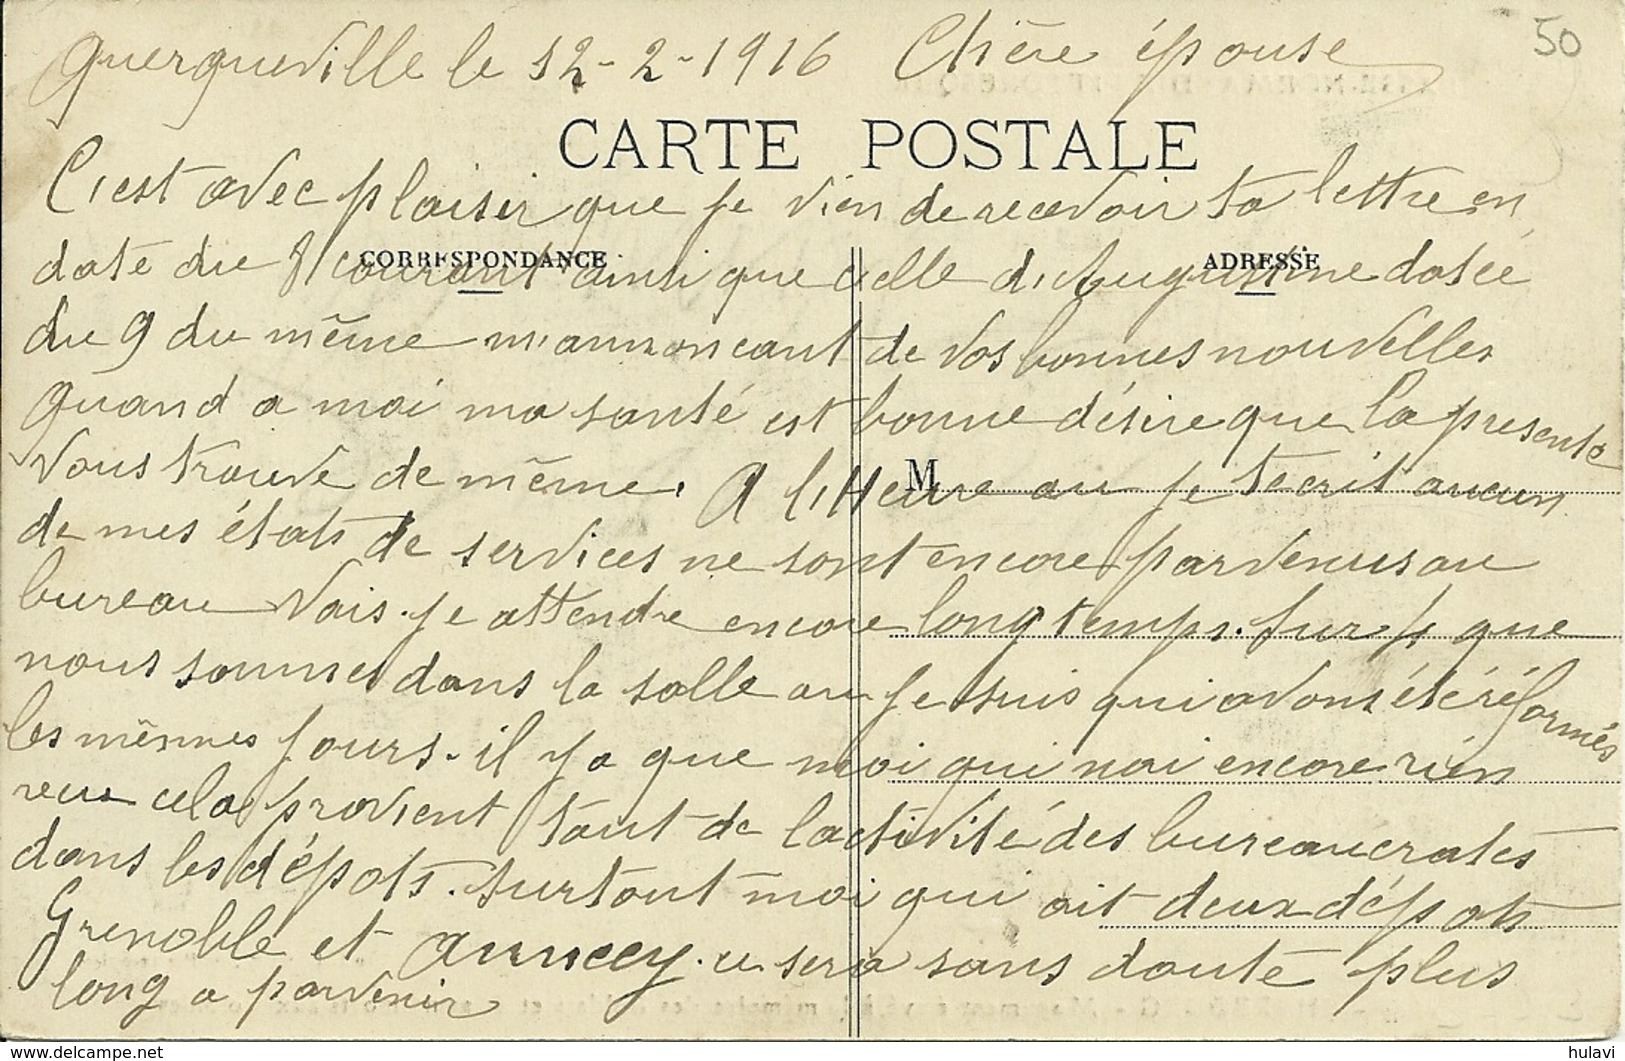 50
Querqueville le 12-2-1916 Chère épouse
CARTE POSTALE
C'est avec plaisir que je vien de recevoir ta lettre en
CORRESPONDANCE
ADRESSE
date du 8 courant ainsi que celle d'Augustine datée
du 9 du même m'annoncant de vos bonnes nouvelles
quand a moi ma santé est bonne désire que la presente
vous trouve de même. A l'Heure au je técrit aucun
M
de mes états de services ne sont encore parvenus au
bureau vais-je attendre encore longtemps. sur 4 que
nous sommes dans la salle au je suis qui avons été réformés
les mêmes jours. il y a que moi qui nai encore rien
reçu cela provient tant de lactivité des bureaucrates
dans les dépots. surtout moi qui ait deux dépots
Grenoble et Annecy. ce sera sans doute plus
long a parvenir
hulavi